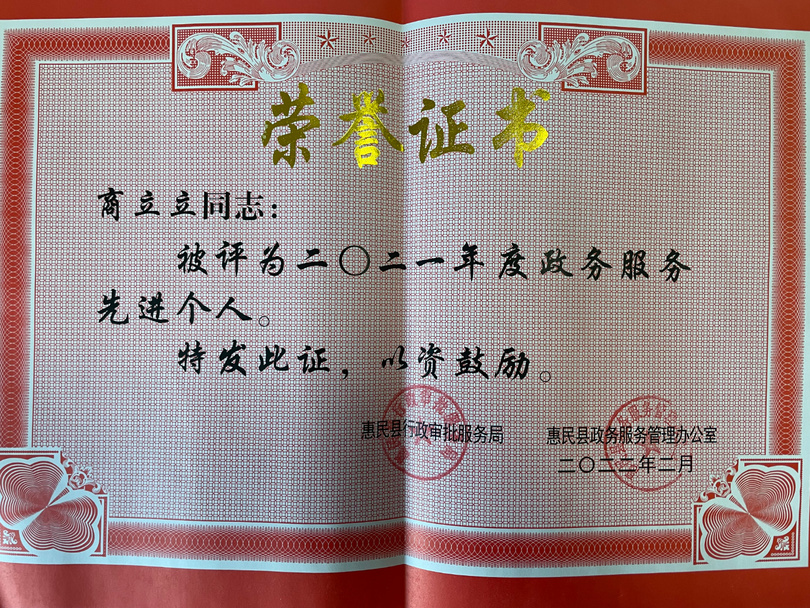 荣誉证书
商立立同志：
被评为二〇二一年度政务服务
先进个人。
特发此证，以资鼓励。
惠民县行政审批服务局 惠民县政务服务管理办公室
二〇二二年二月